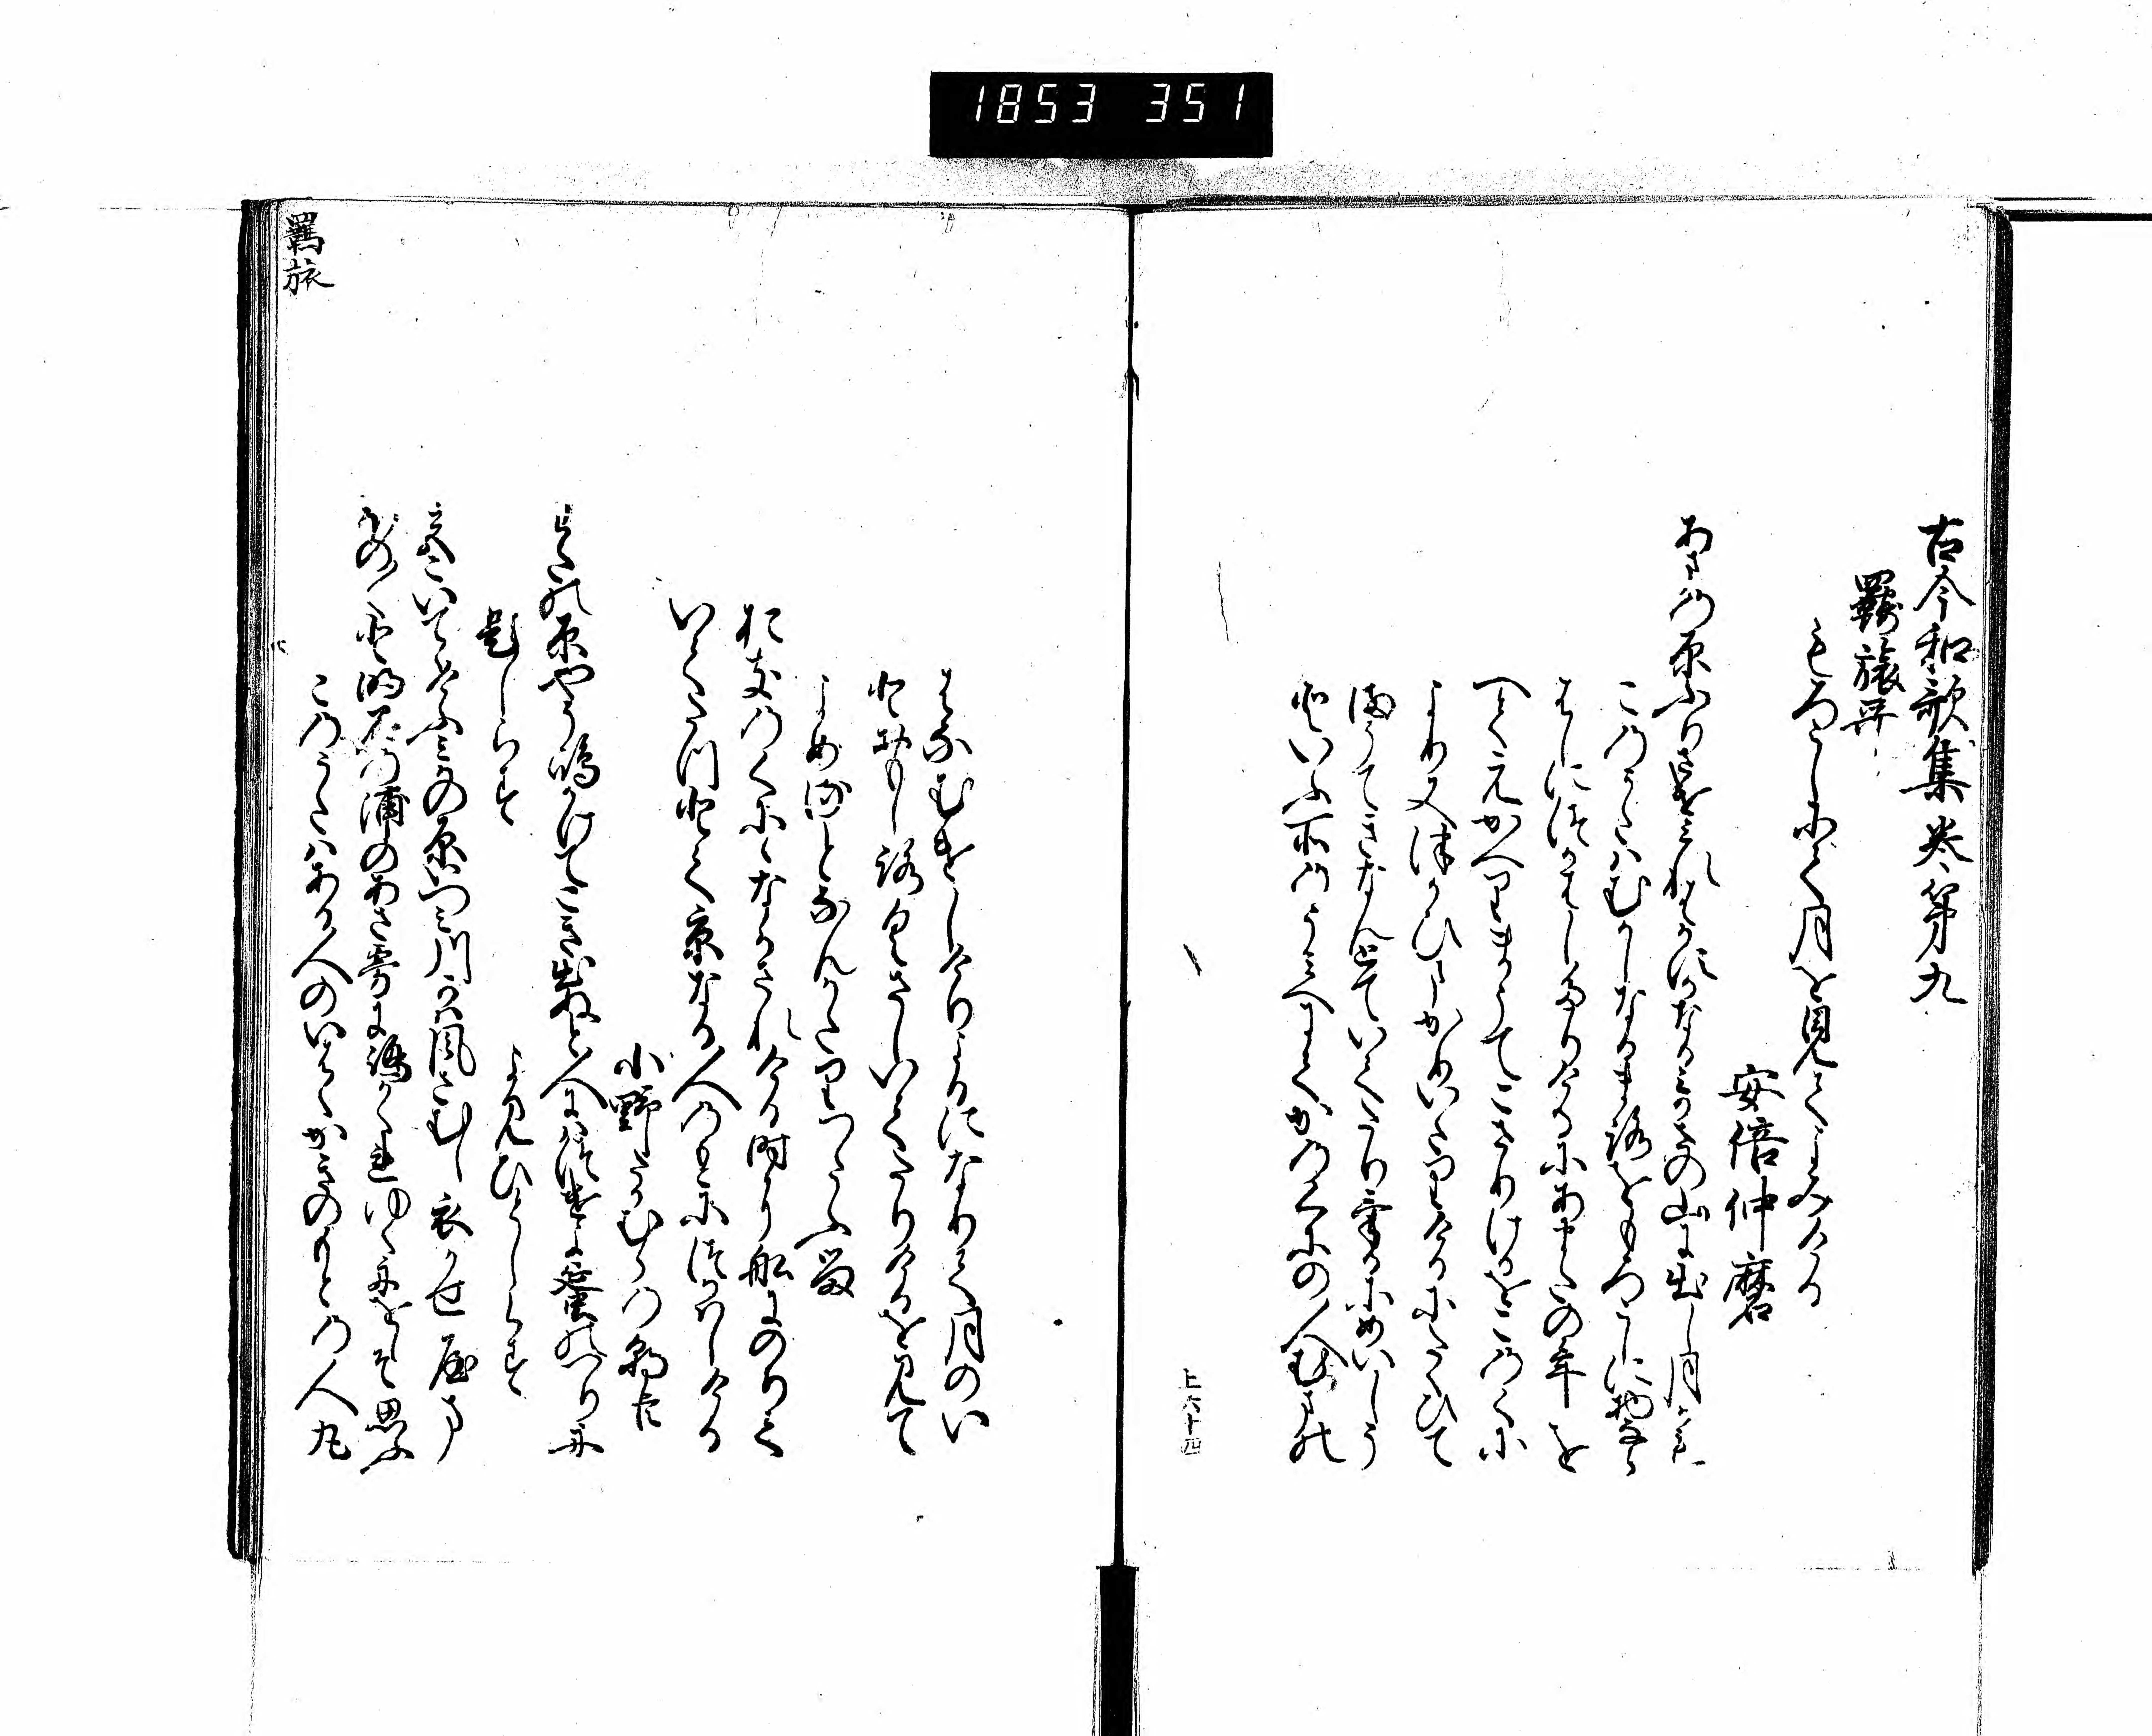 1853 351
古今和歌集巻第九
羇旅哥
もろこしにて月を見てよみける
安倍仲麿
あまの原ふりさけみれはかすかなるみかさの山に出し月かも
この哥はむかしなかまろをもろこしに物なら
はしにつかはしたりけるにあまたの年を
へてえかへりまうてこさりけるをこのくに
より又つかひまかりいたりけるにたくひて
まうてきなんとていてたりけるにめいしう
といふ所のうみへにてかのくにの人むまの
はなむけしけりよるになりて月のい
とおもしろくさしいてたりけるを見て
よめるとなんかたりつたふる
おきのくにゝなかされける時に船にのりて
いてたつとて京なる人のもとにつかはしける
小野たかむらの朝臣
わたの原やそ嶋かけてこき出ぬと人にはつけよ蜑のつり舟
題しらす
よみ人しらす
都いてゝけふみかの原いつみ川かは風さむし衣かせ山
ほの〳〵と明石の浦のあさ霧に嶋かくれゆく舟をしそ思ふ
このうたはある人のいはくかきのもとの人丸
羇旅
上六十四